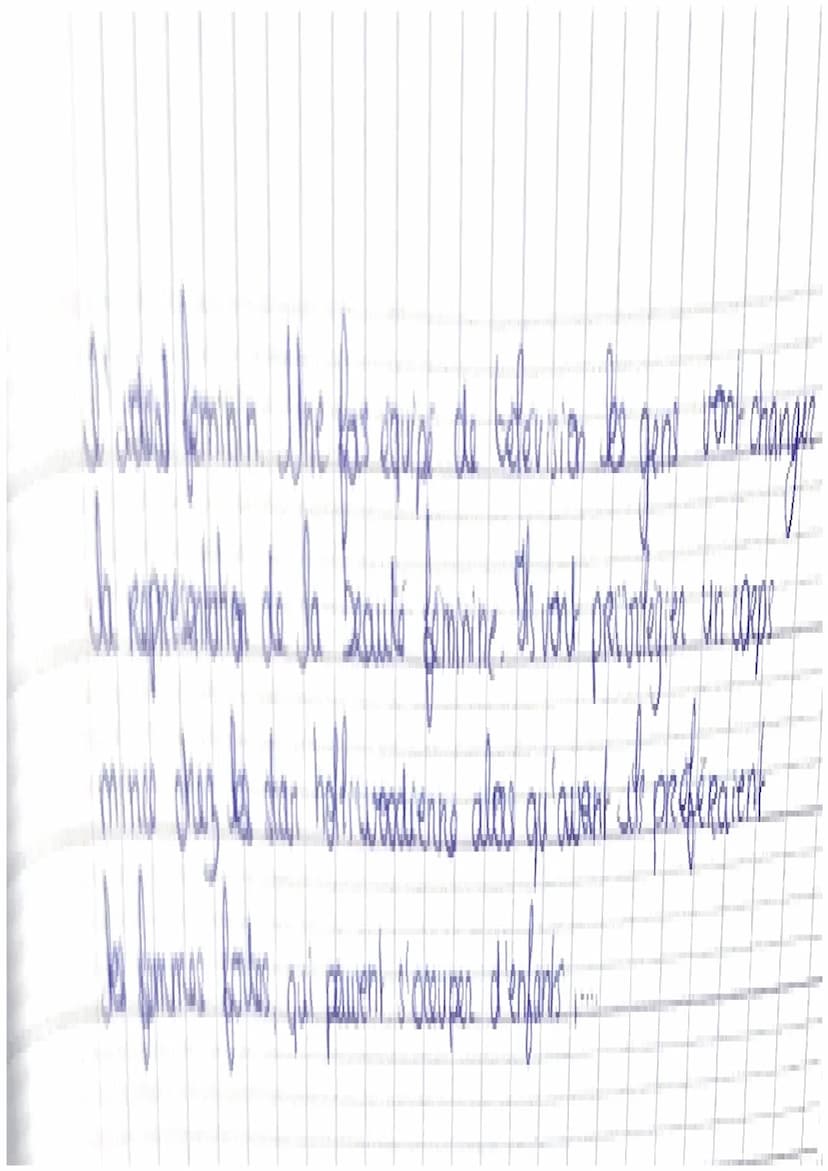 l'idéal féminin. Une fois équipé de télévision les gens vont changer
la représentation de la beauté féminine. Ils vont privilégier un corps
mince chez les star hollywoodienne alors qu'avant ils préféraient
les femmes fortes, qui peuvent s'occuper d'enfants ....